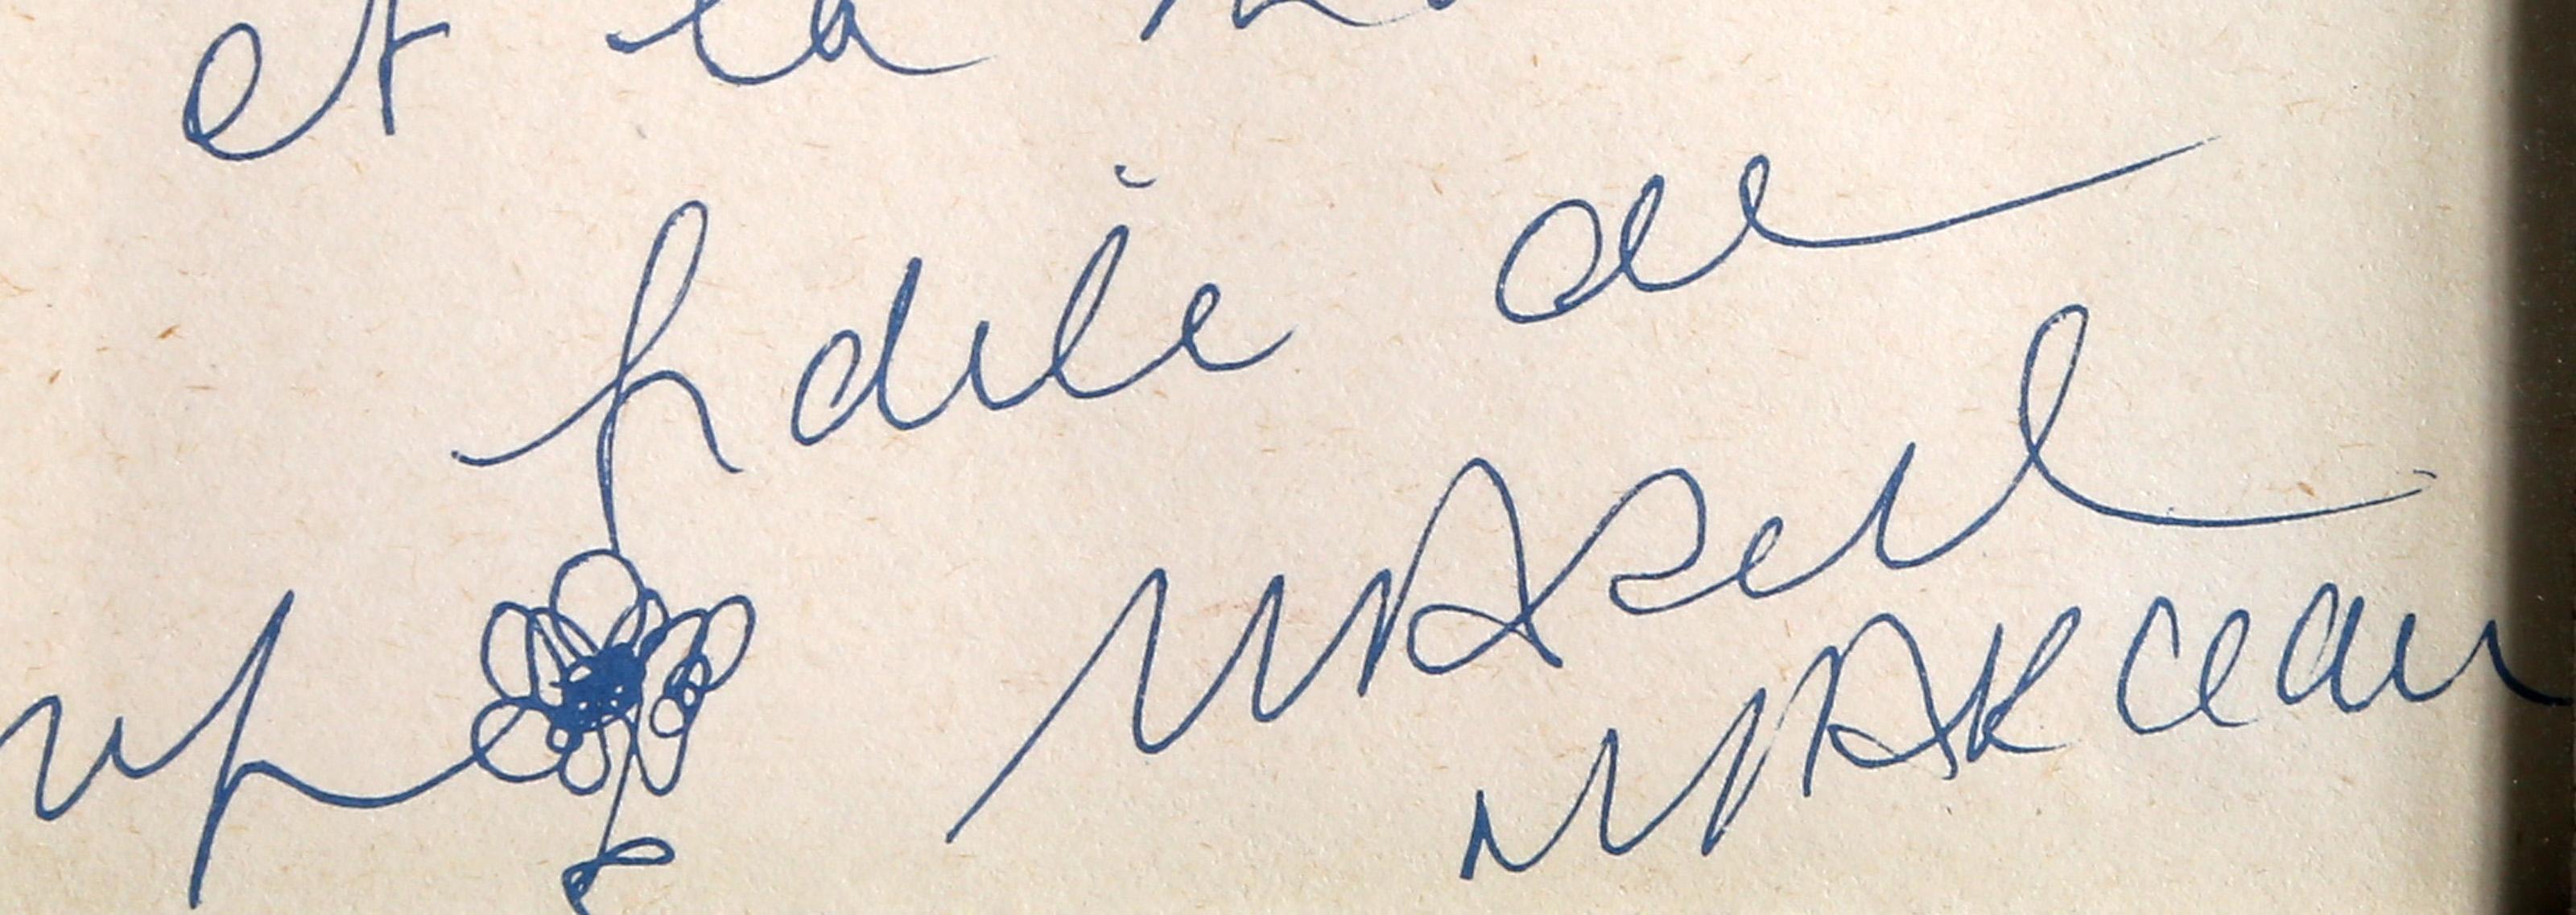 et la
fidèle de
MARcel
MARCeau